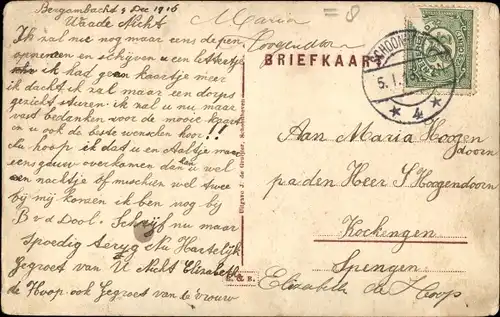 Bergambacht 3 Dec 1916
Waade Nicht
Ik zal me nog maar eens de pen
opnemen en schijven u een lettertje
ik had geen kaartje meer
ik dacht ik zal maar een dorps
gezicht sturen. ik zal u nu maar
vast bedanken voor de mooie kaart
en u ook de beste wenschen hoor!!
Nu hoop ik dat u en Aaltje maar
eens gauw overkomen dan kan u wel
een nachtje of mischien wel twee
by mij konsen ik ben nog by
B v d Dool. Schrijf nu maar
spoedig terug Nu Hartelijk
Gegroet van U Nicht Elizabeth
de Hoop ook Gegroet van de vrouw
Maria
Hoogendoorn
= 8
BRIEFKAAR
SCHOONH
5.1.1
* 4 *
Uitgave J. de Groot, Schoonhoven
& R.
Aan Maria Hoogen
doorn
p.a den Heer S Hoogendoorn
Kockengen
Spengen
Elizabeth de Hoop